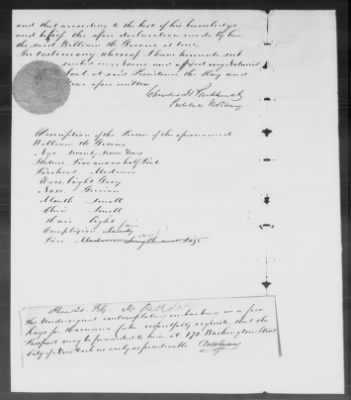 and that according to the best of his knowledge
and belief the afore declaration made by him
the said William H. Greene is true.
In testimony whereof I have hereunto sub
scribed my Name and affixed my Notarial
Seal at said Providence the Day and
Year afore written
Charles H. Parkhurst
Public Notary
Description of the Person of the aforenamed
William H. Greene
Age Twenty seven Years
Stature Five and one half Feet
Forehead Medium
Eyes Light Grey
Nose Grecian
Mouth Small
Chin Small
Hair Light
Complexion
Face
The Undersigned contemplating embarking in a few
Days for Havanna Cuba respectfully requests that the
Passport may be forwarded to him at 172 Washington Street
City of New York as early as practicable